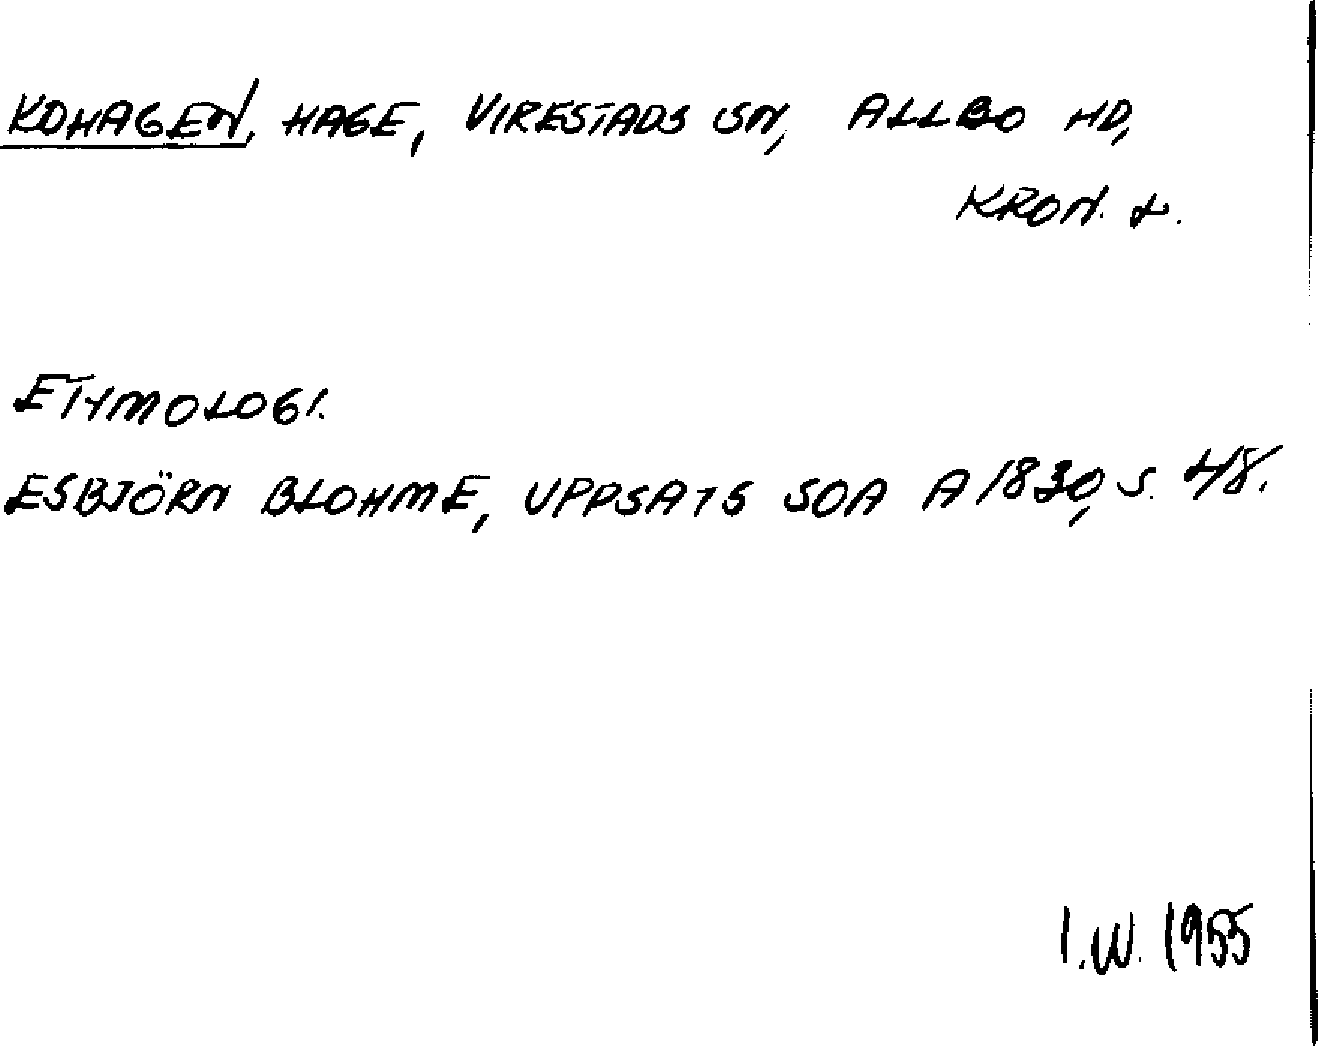 KOHAGEN, HAGE, VIRESTADS SN, ALLBO HD,
KRON. L.
ETYMOLOGI.
ESBJÖRN BLOHMÉ, UPPSATS SOA A 1830, S. 48.
I.W. 1955